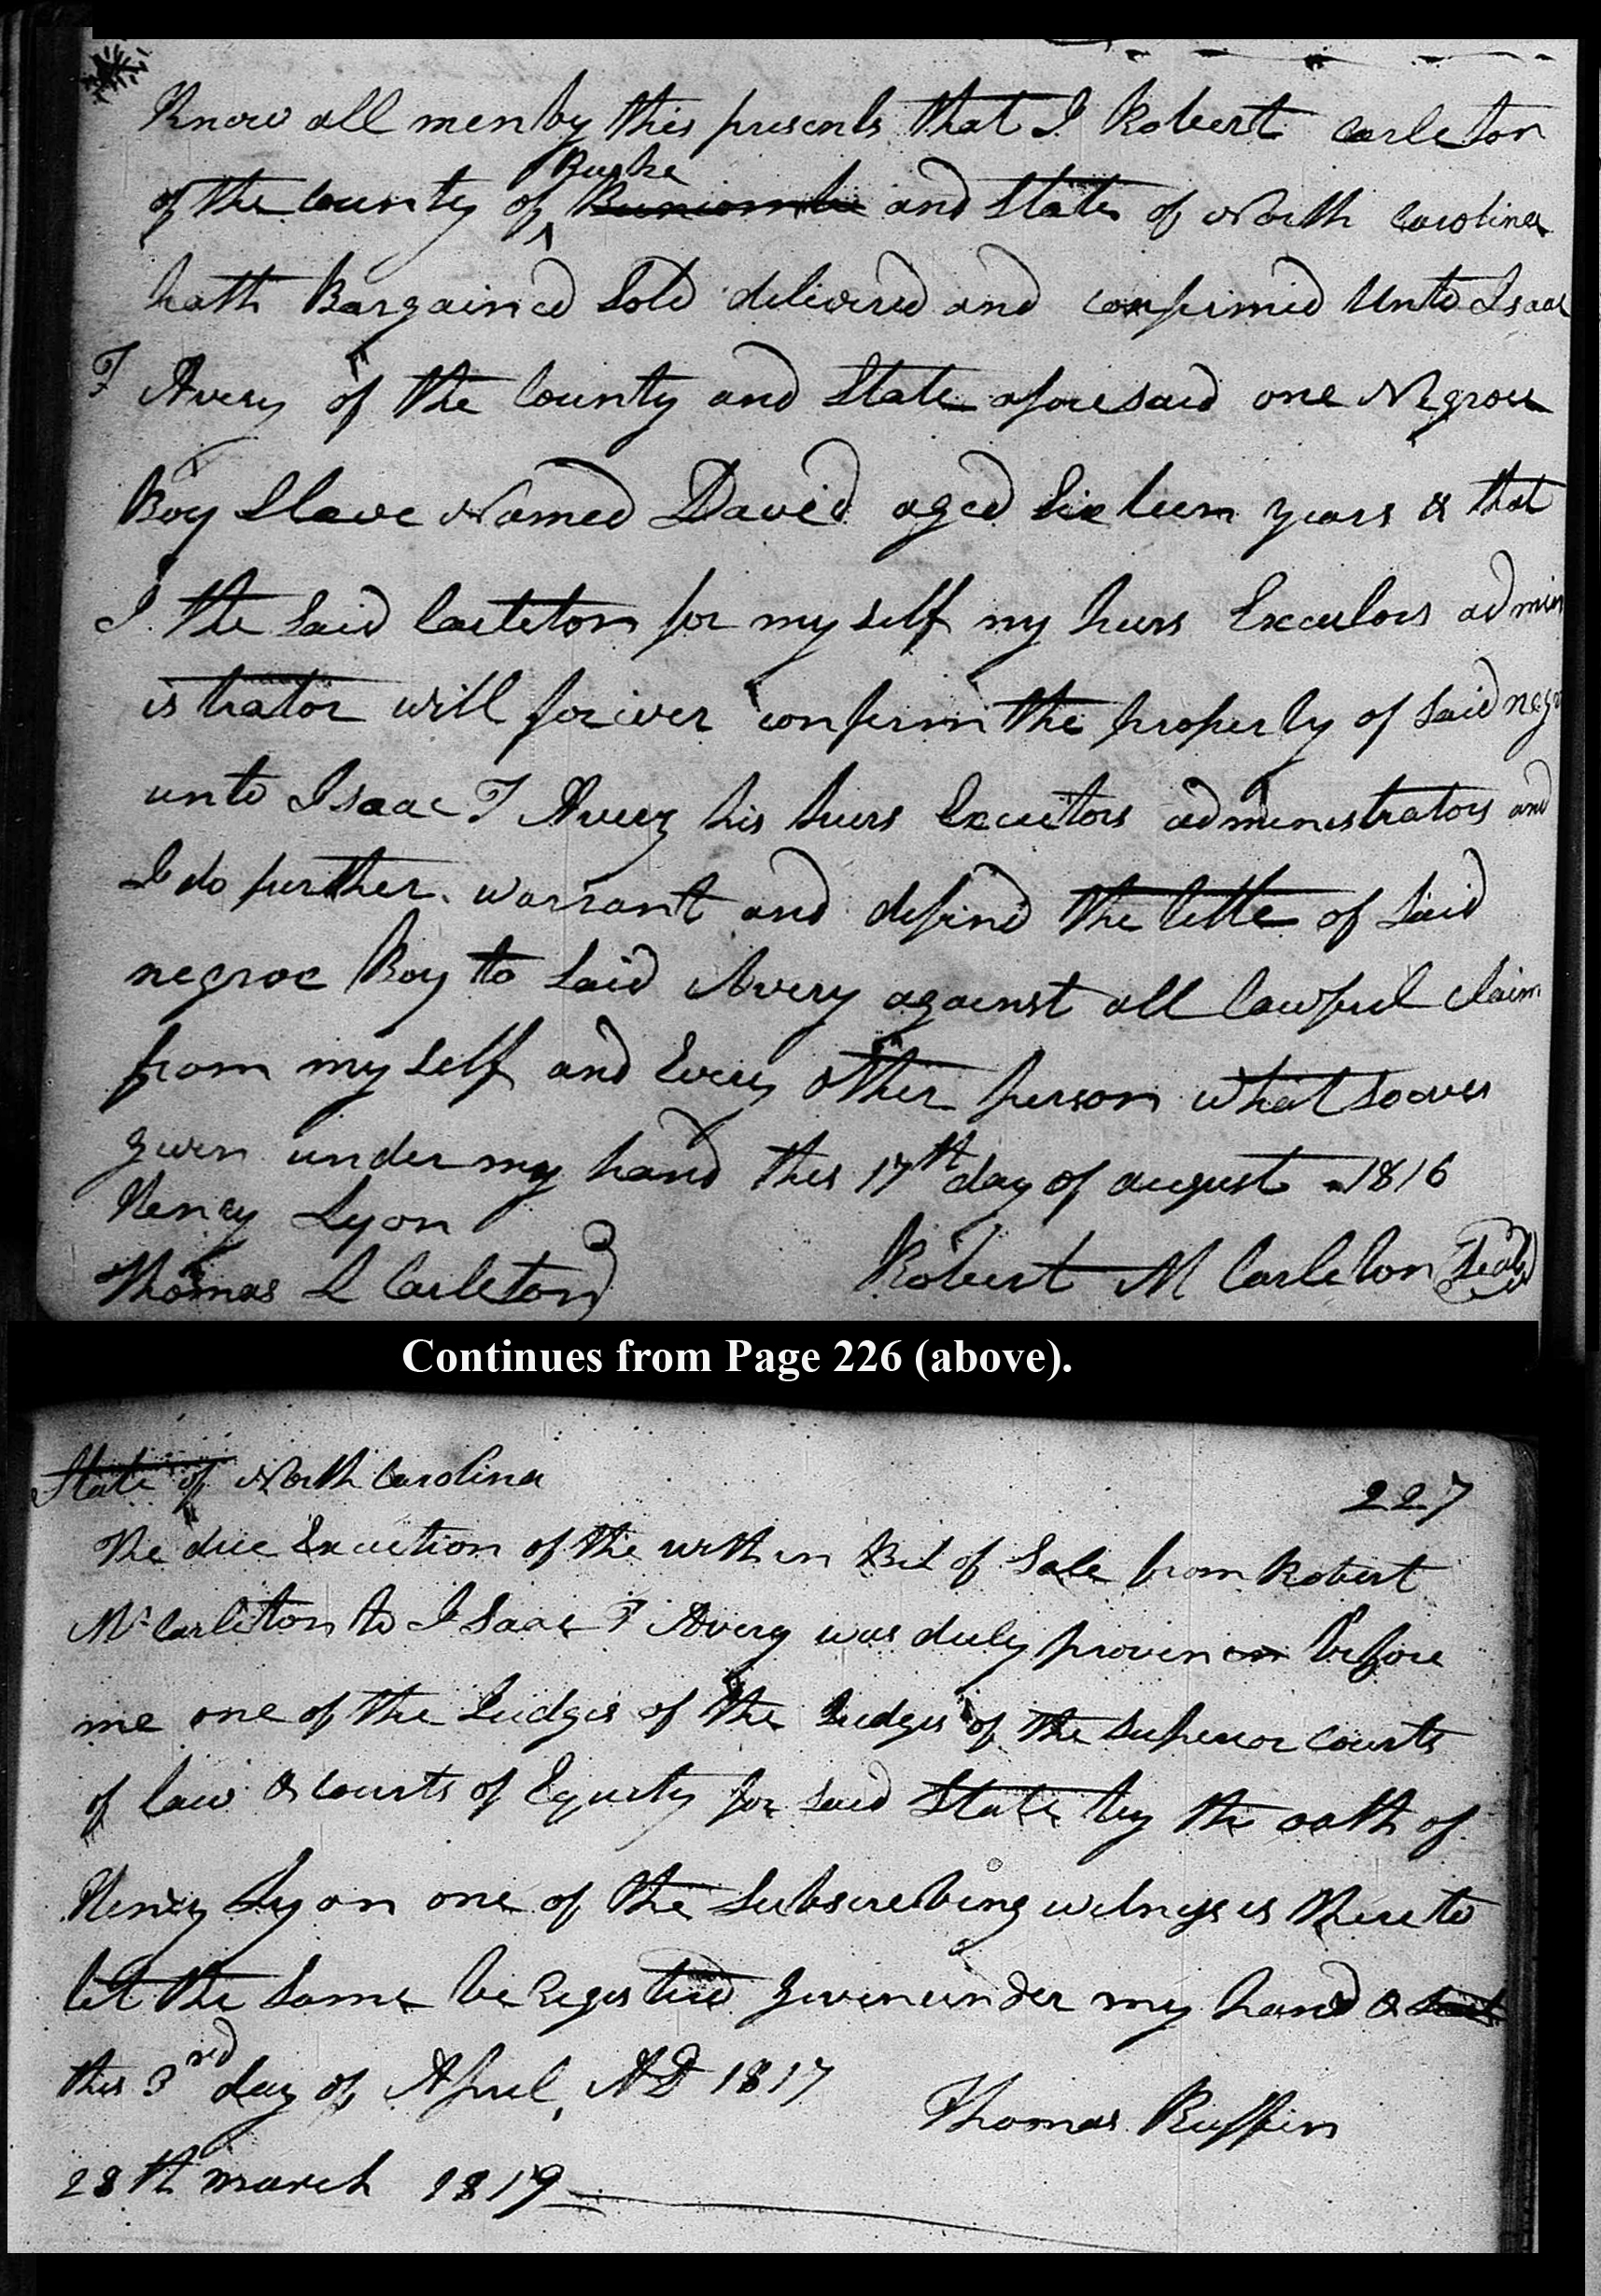 Know all men by this presents that I Robert Carleton
Burke
of the County of Buncombe and State of North Carolina
hath Bargained Sold delivered and confirmed Unto Isaac
T Avery of the County and State aforesaid one Negroe
Boy Slave Named David aged Sixteen years & that
I the Said Carleton for my self my heirs Executors admin
istrator will forever confirm the property of Said negr
unto Isaac T Avery his heirs Executors administrators and
I do further warrant and defend the title of Said
negroe Boy to Said Avery against all lawful claim
from my self and Every other person whatsoever
given under my hand this 17th day of august 1816
Henry Lyon
Thomas L Carleton Robert M Carleton Seal
Continues from Page 226 (above).
State of North Carolina 227
The due Execution of the within Bil of Sale from Robert
M Carleton to Isaac T Avery was duly proven before
me one of the Judges of the Judges of the Superior Courts
of law & courts of Equity for said State by the oath of
Henry Lyon one of the Subscribing witnesses thereto
let the Same be Registred given under my hand & seal
this 3rd day of April, AD 1817
Thomas Ruffin
28th march 1819